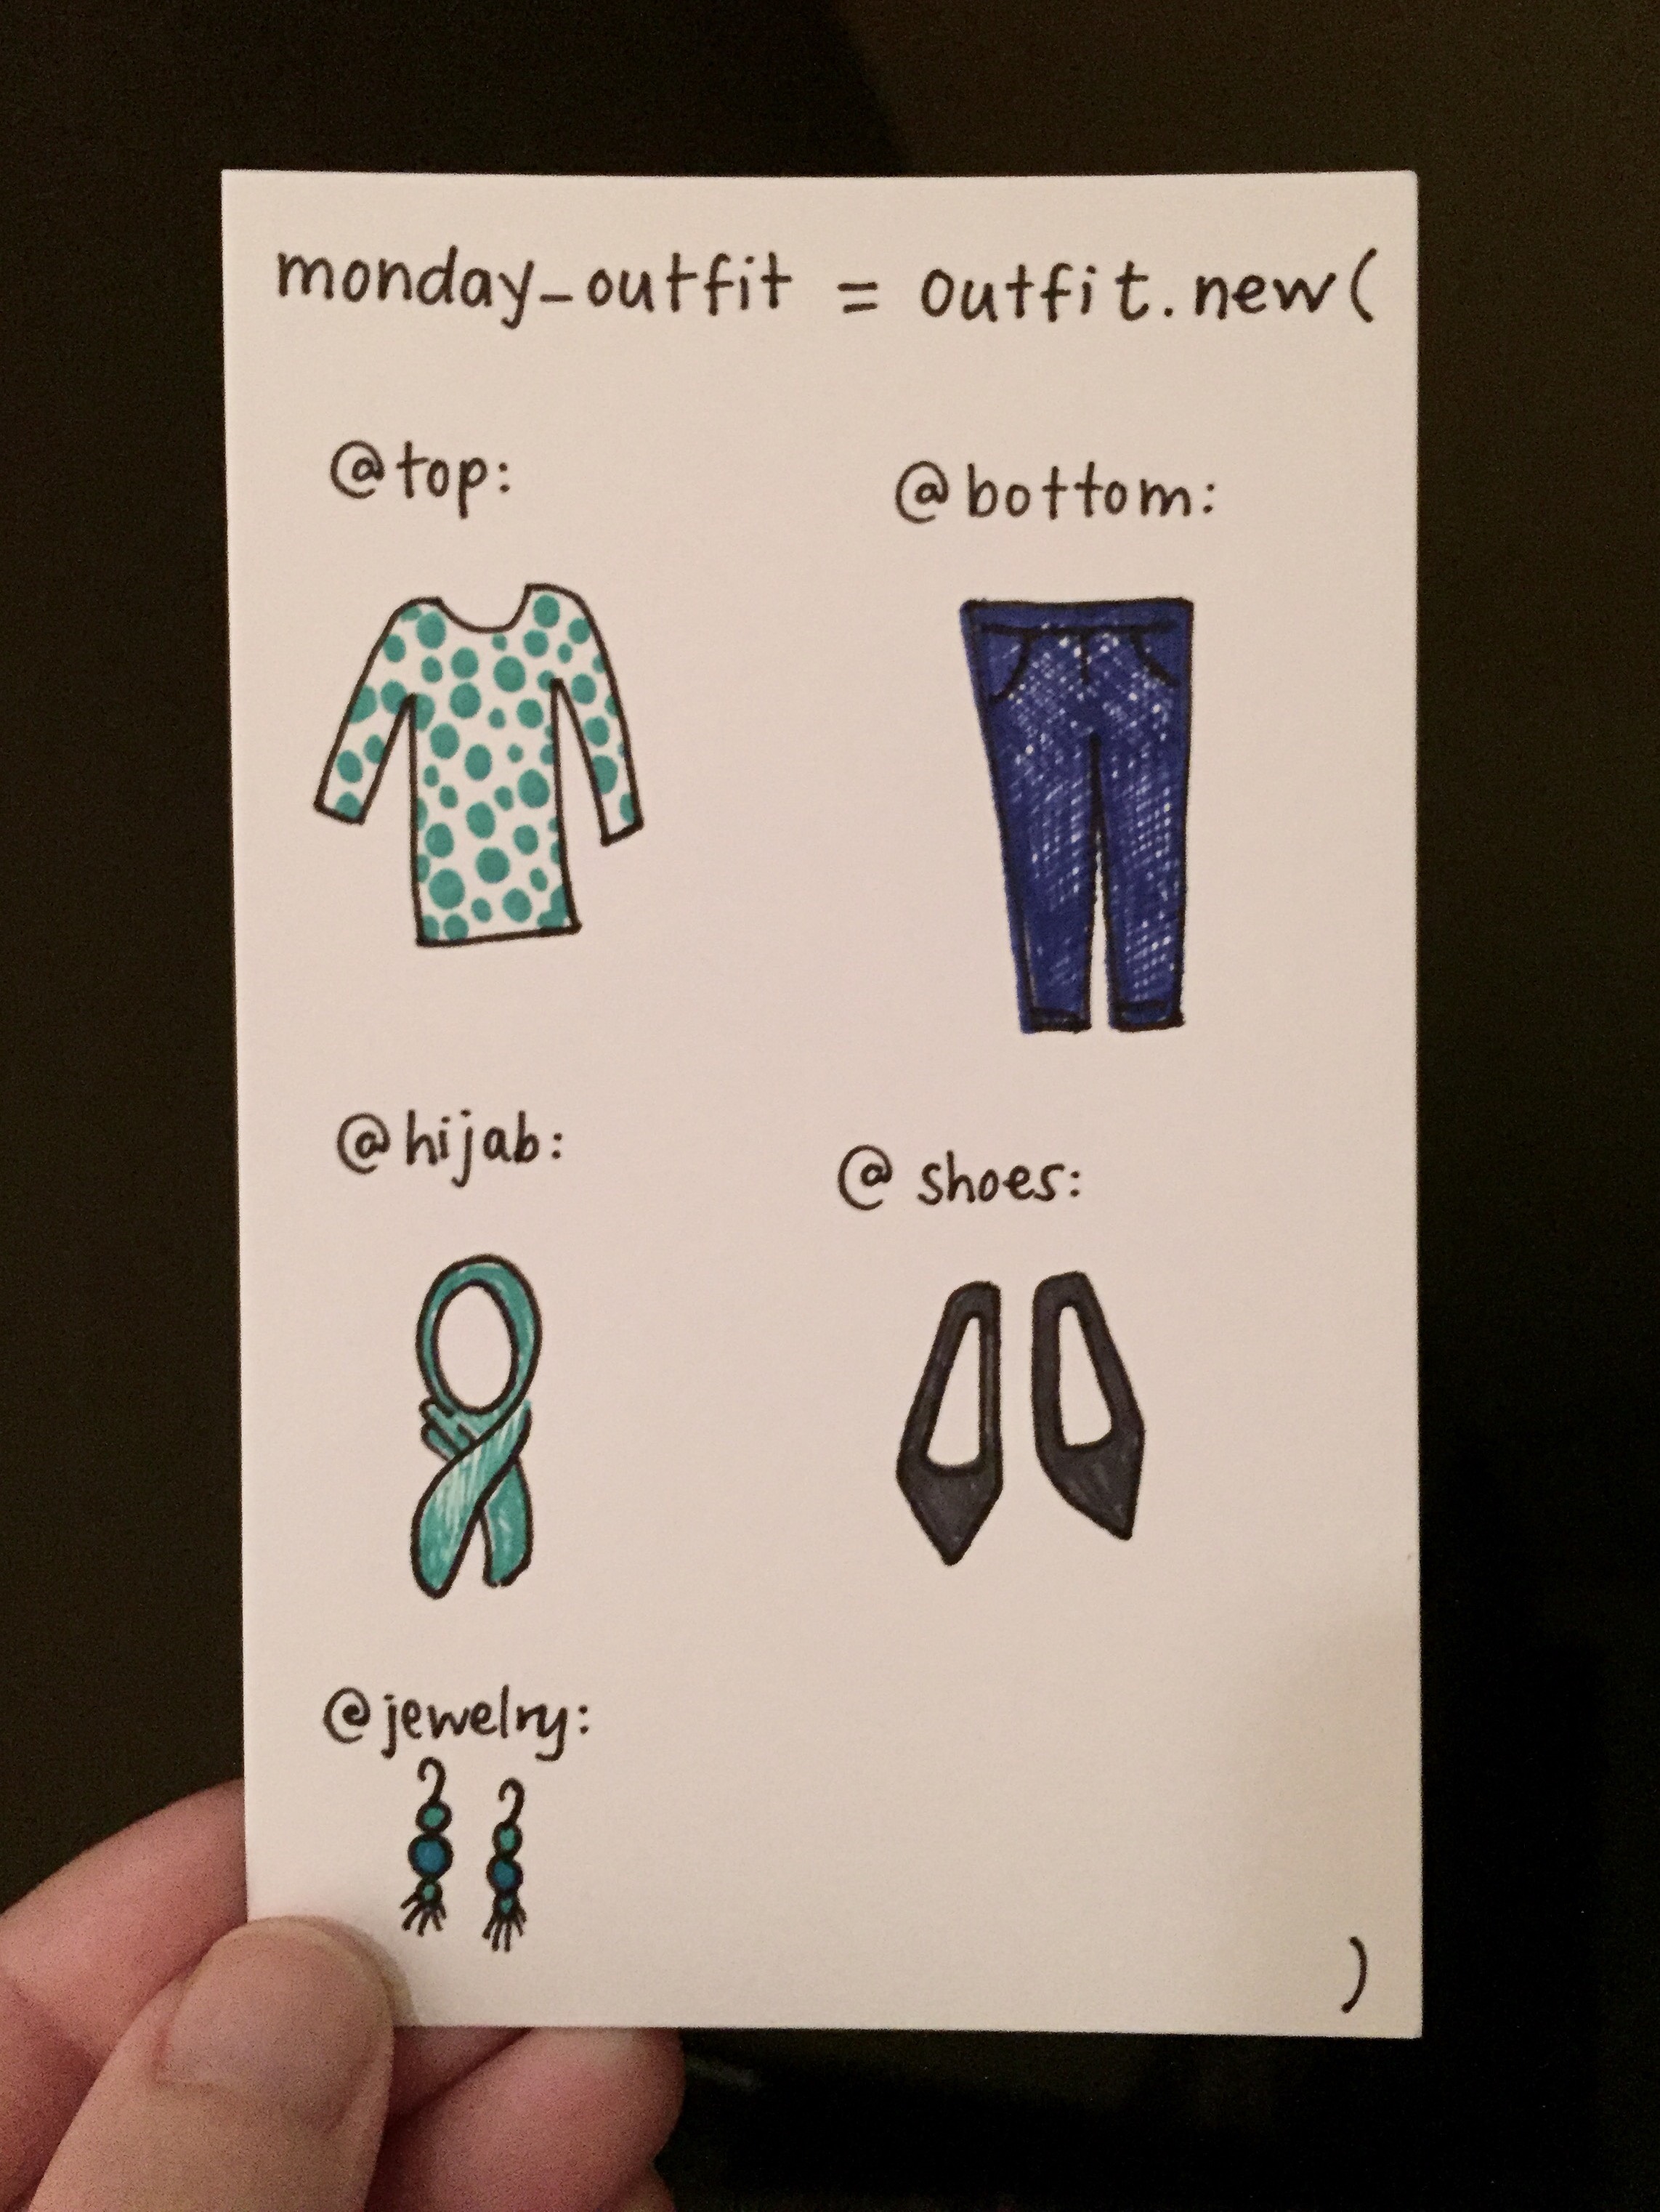 monday_outfit = outfit.new(
@top:
@bottom:
@hijab:
@ shoes:
@jewelry:
)